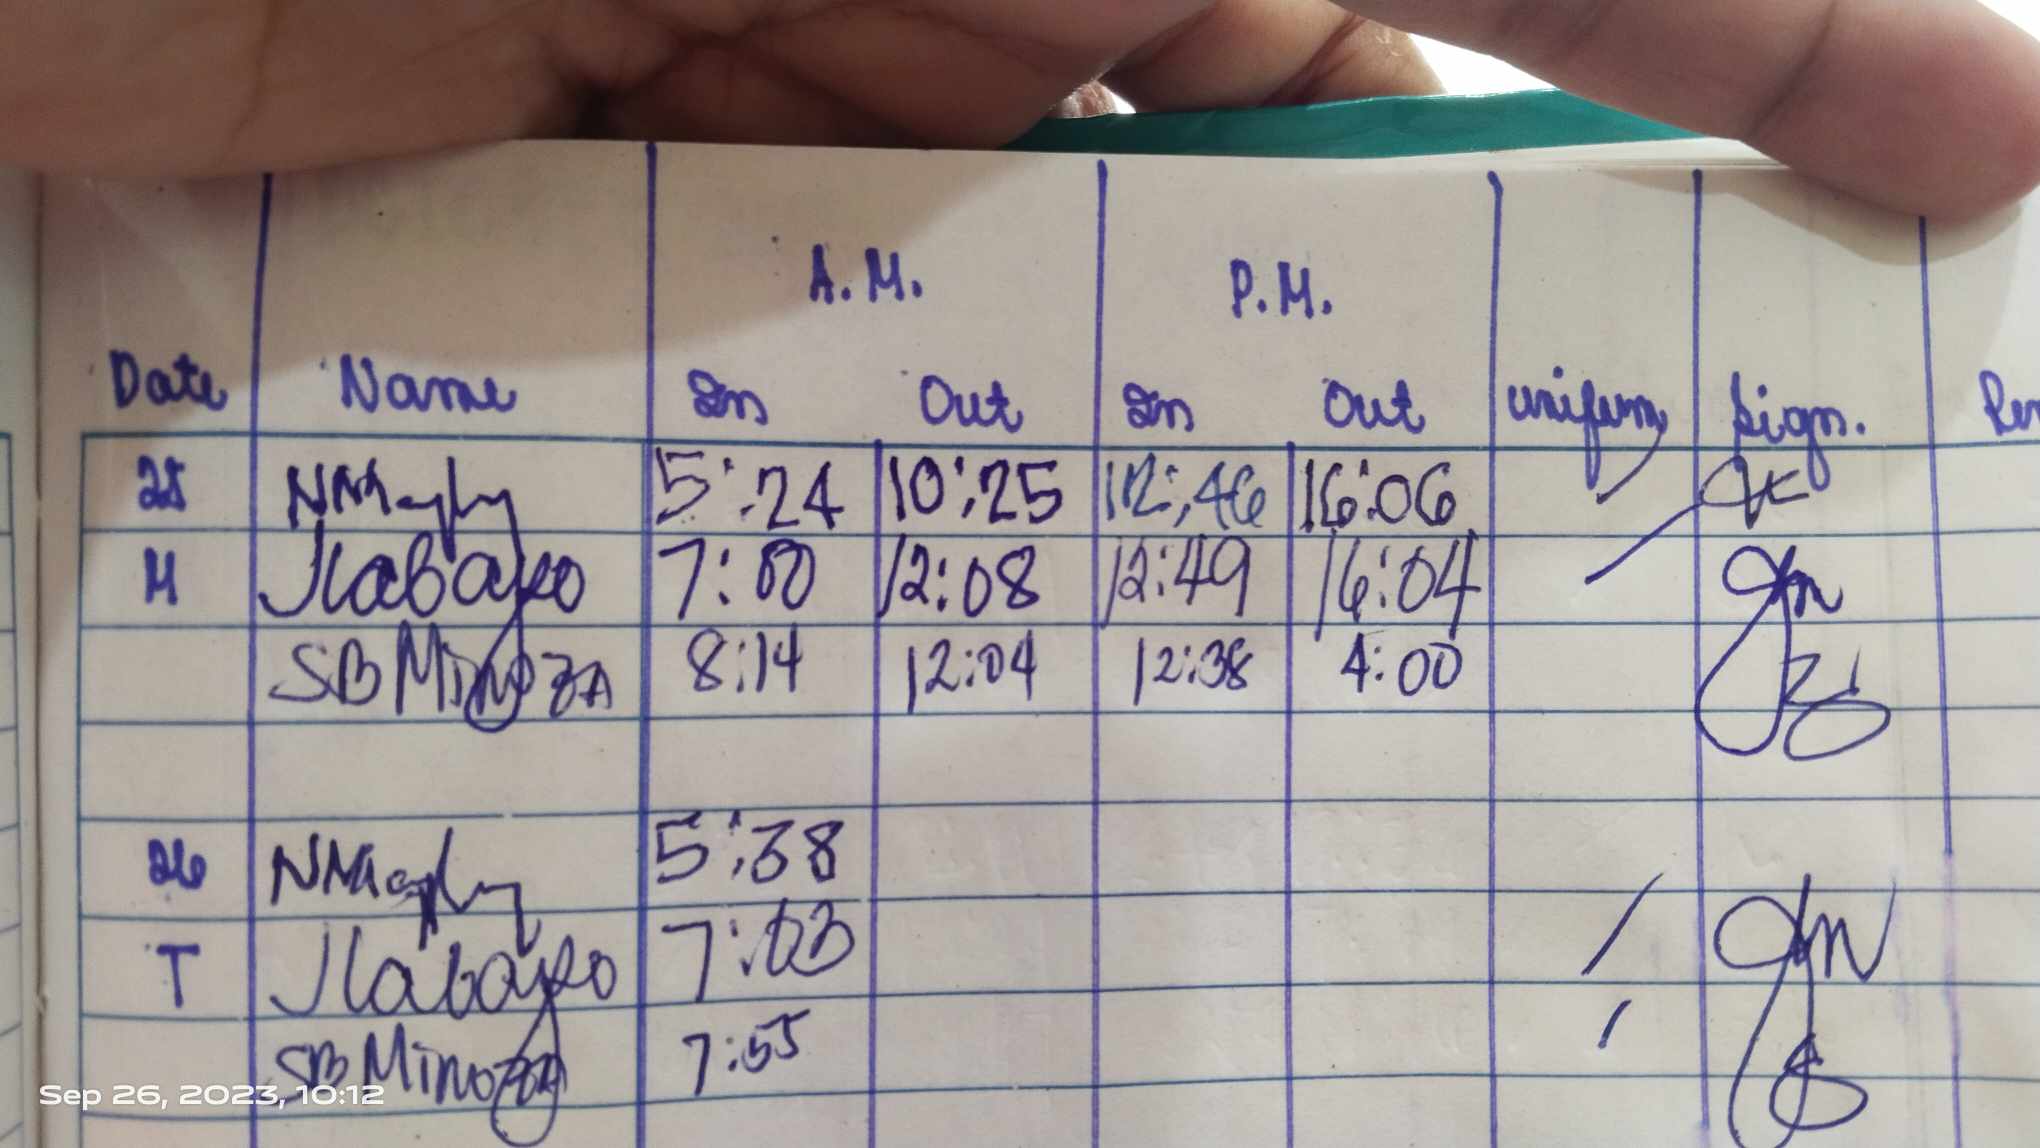 A.M. P.M.
Date Name In Out In Out uniform Sign.
25 5:24 10:25 12:46 16:06
M Jlabayo 7:00 12:08 12:49 16:04
SB MiNOZA 8:14 12:04 12:38 4:00
26 5:38
T Jlabayo 7:03
SB MiNOZA 7:55
Sep 26, 2023, 10:12